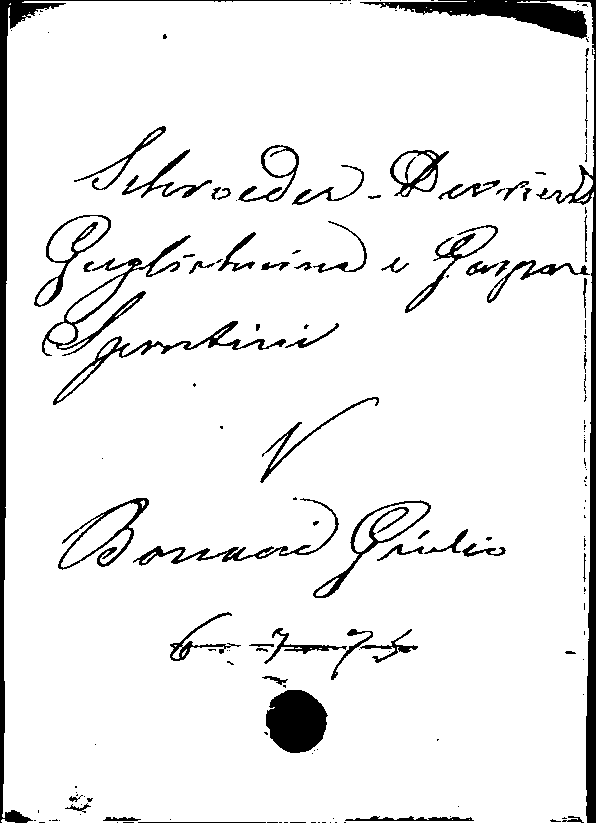 Schroeder-Devrient
Guglielmina e Gaspare
Spontini
V
Bonucci Giulio
6 7 75